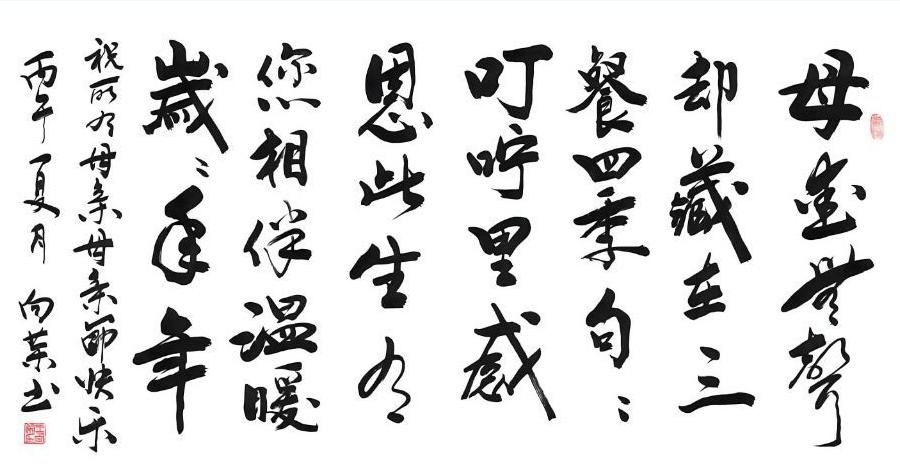 母爱無聲
却藏在三
餐四季句〻
叮咛里感
恩此生有
您相伴温暖
歲〻年年
祝所有母亲母亲節快乐
丙午夏月 向书